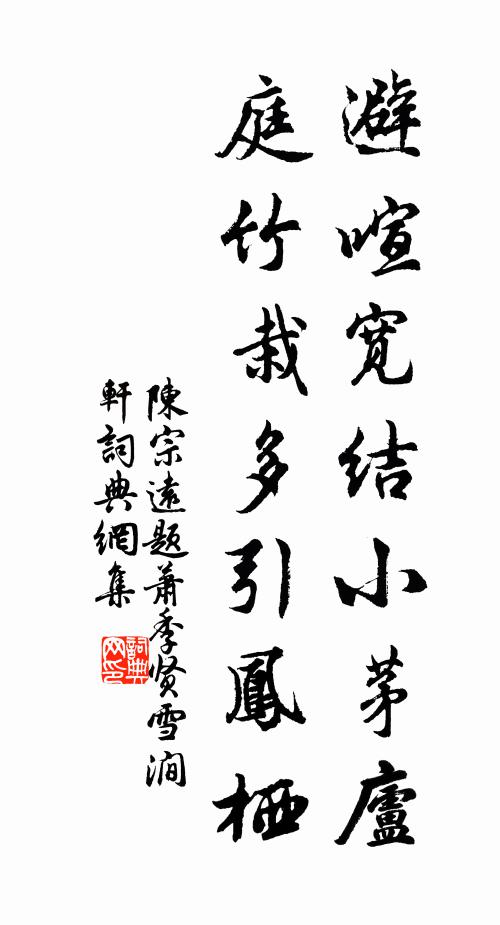 避喧宽结小茅廬
庭竹栽多引鳳栖
陳宗遠题蕭季贤雪澗
軒詞典網集
詞典
网印